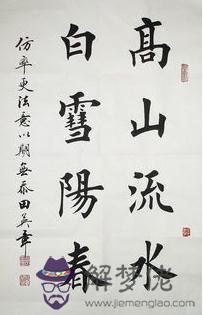 高山流水
白雪陽春
仿率更法意以期無忝田英章
解梦佬
www.jiemenglao.com